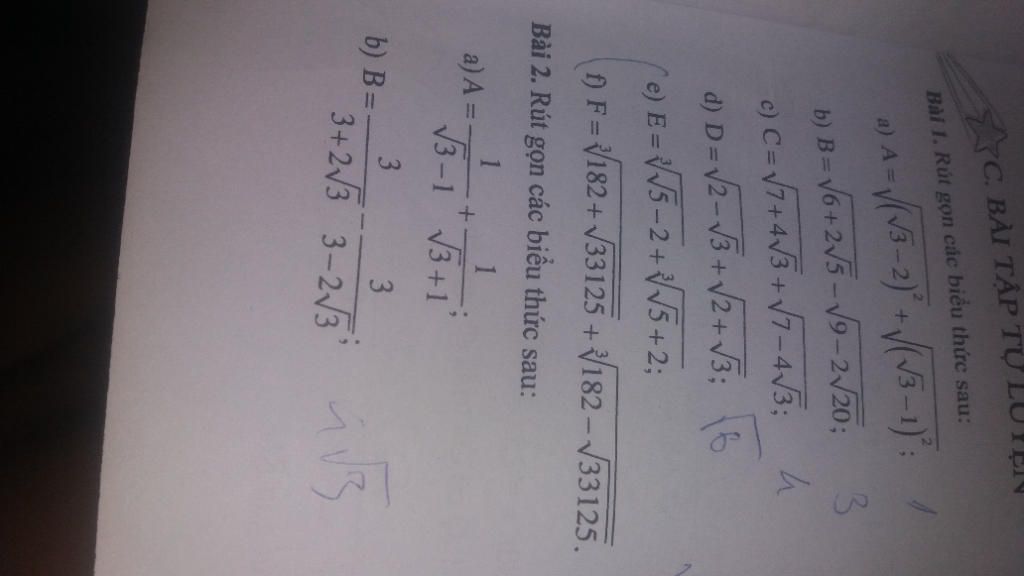 C. BÀI TẬP TỰ LUYỆN
Bài 1. Rút gọn các biểu thức sau:
a) A = √((√3 − 2)²) + √((√3 − 1)²); 1
b) B = √(6 + 2√5) − √(9 − 2√20); 3
c) C = √(7 + 4√3) + √(7 − 4√3); 4
d) D = √(2 − √3) + √(2 + √3); √6
e) E = ∛(√5 − 2) + ∛(√5 + 2);
f) F = ∛(182 + √33125) + ∛(182 − √33125).
Bài 2. Rút gọn các biểu thức sau:
a) A = 1/(√3 − 1) + 1/(√3 + 1);
b) B = 3/(3 + 2√3) − 3/(3 − 2√3); 4√3